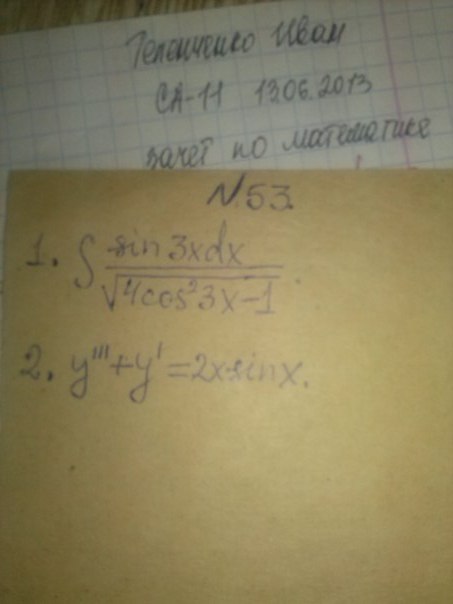 Иван
СА-11 13.06.2013
зачет по математике
N.53.
1. ∫ sin 3xdx / √(4cos²3x-1) .
2. y''' + y' = 2x sinx.